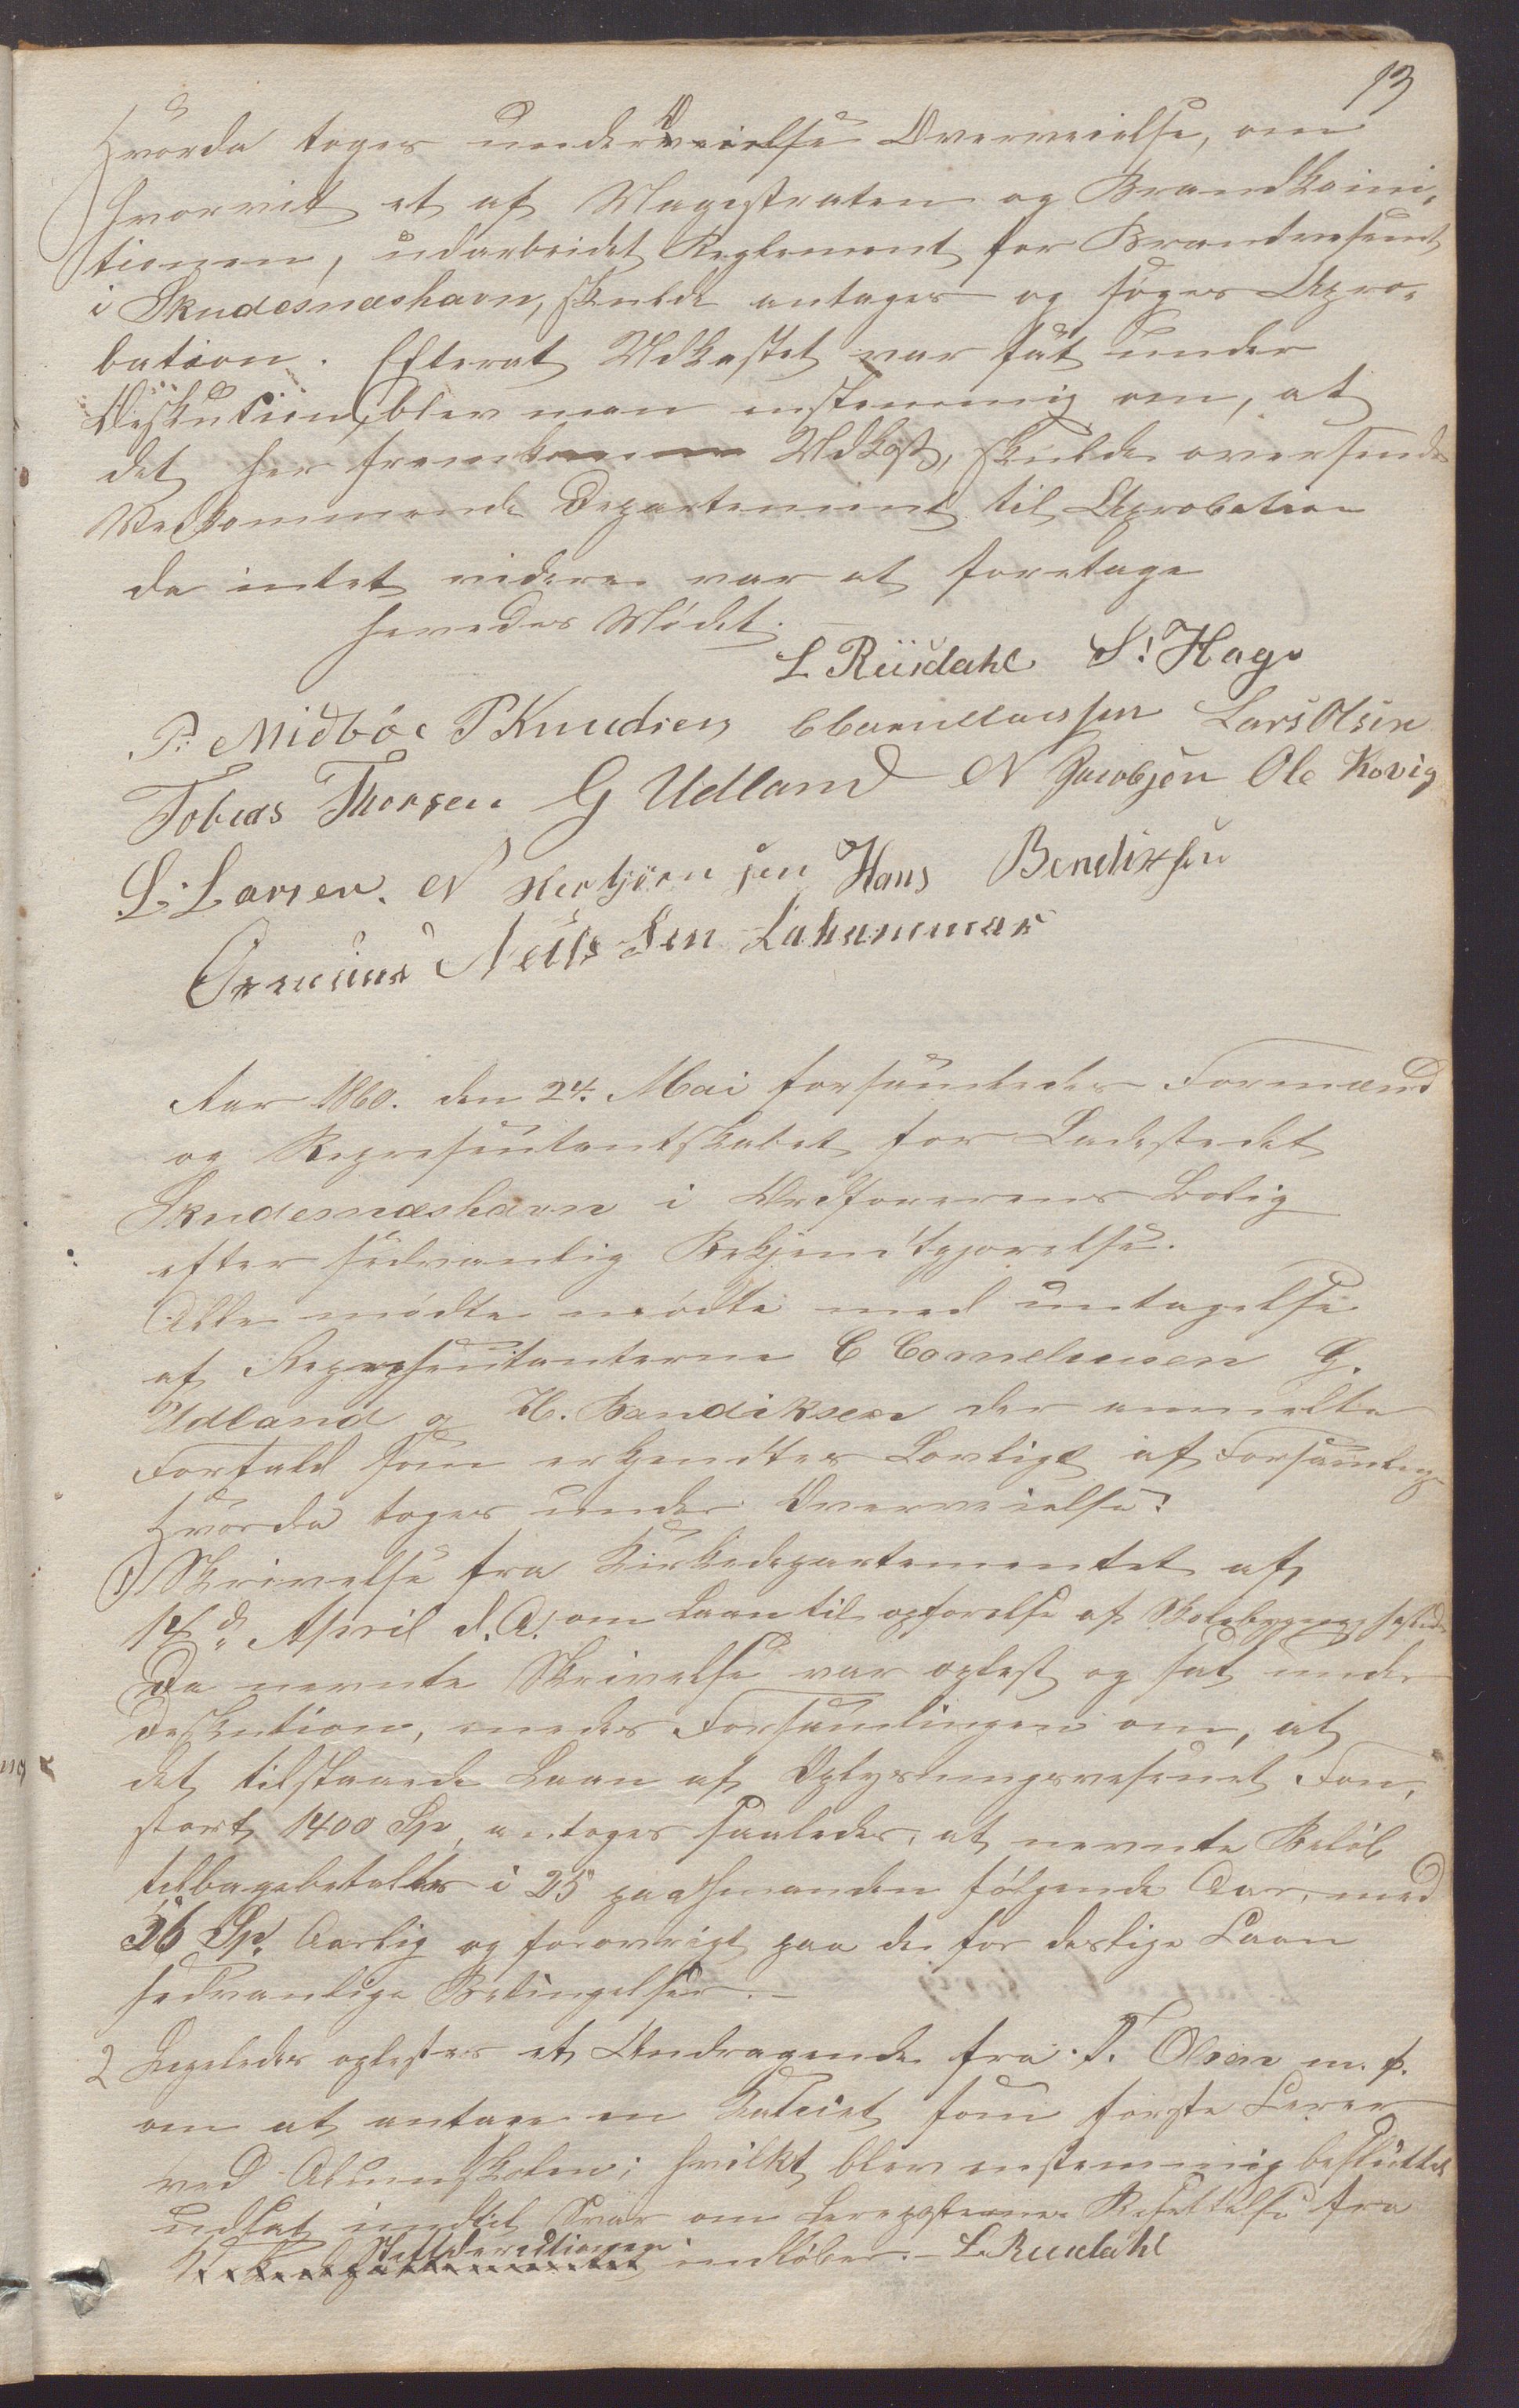 13
Hvorda toges under Overveielse, om
hvorvit et af Magistraten og Brandkomi-
tionen, udarbeidet Reglement for Brandvesenet
i Skudesnæshavn, skulde antages og søges Apro-
bation. Efterat Udkastet var sat under
Diskution, blev man enstemmig om, at
det her fremkomne Udkast, skulde oversendes
Vedkommende Departement til Aprobation
da intet videre var at foretage
hevedes Mødet.
L Ruusdahl S! Hage
P. Midbøe P Knudsen Lars Olsen
Tobias Thorsen G Udland N Jacobsen Ole Kovig
L. Larsen. N Herbjørnsen Hans Bendixsen
Neilssen Lahammar
Aar 1860. den 24. Mai forsamledes Formænd
og Representantskabet for Ladestedet
Skudesnæshavn i Ordførerens Bolig
efter sedvanlig Bekjendtgjørelse.
Alle mødte mødte med untagelse
af Representanterne C Corneliussen G.
Udland og H. Bendiksen der anmelte
Forfald som erkjendtes Lovligt af Forsamling
Hvorda toges under Overveielse:
1) Skrivelse fra Kirkedepartementet af
14 d. April d. A. om Laan til opførelse af Skolebygning
Da nevnte Skrivelse var oplest og sat under
Deskution, enedes Forsamlingen om, at
det tilstaaede Laan af Oplysningsvesenet Fon,
stort 1400 Sp, antoges saaledes, at nevnte Beløb
tilbagebetaltes i 25 paa hinanden følgende Aar, med
56 Sp. Aarlig og forøvrigt paa de for deslige Laan
sedvanlige Betingelser.
2 Ligeledes oplestes et Andragende fra T. Olsen m. fl.
om at antage en som første Lerer
ved Almuskolen; hvilket blev enstemmig besluttet
udsat indtil Svar om Lereposternes Besettelse fra
Stiftdirectionen indløber. – L. Ruusdahl